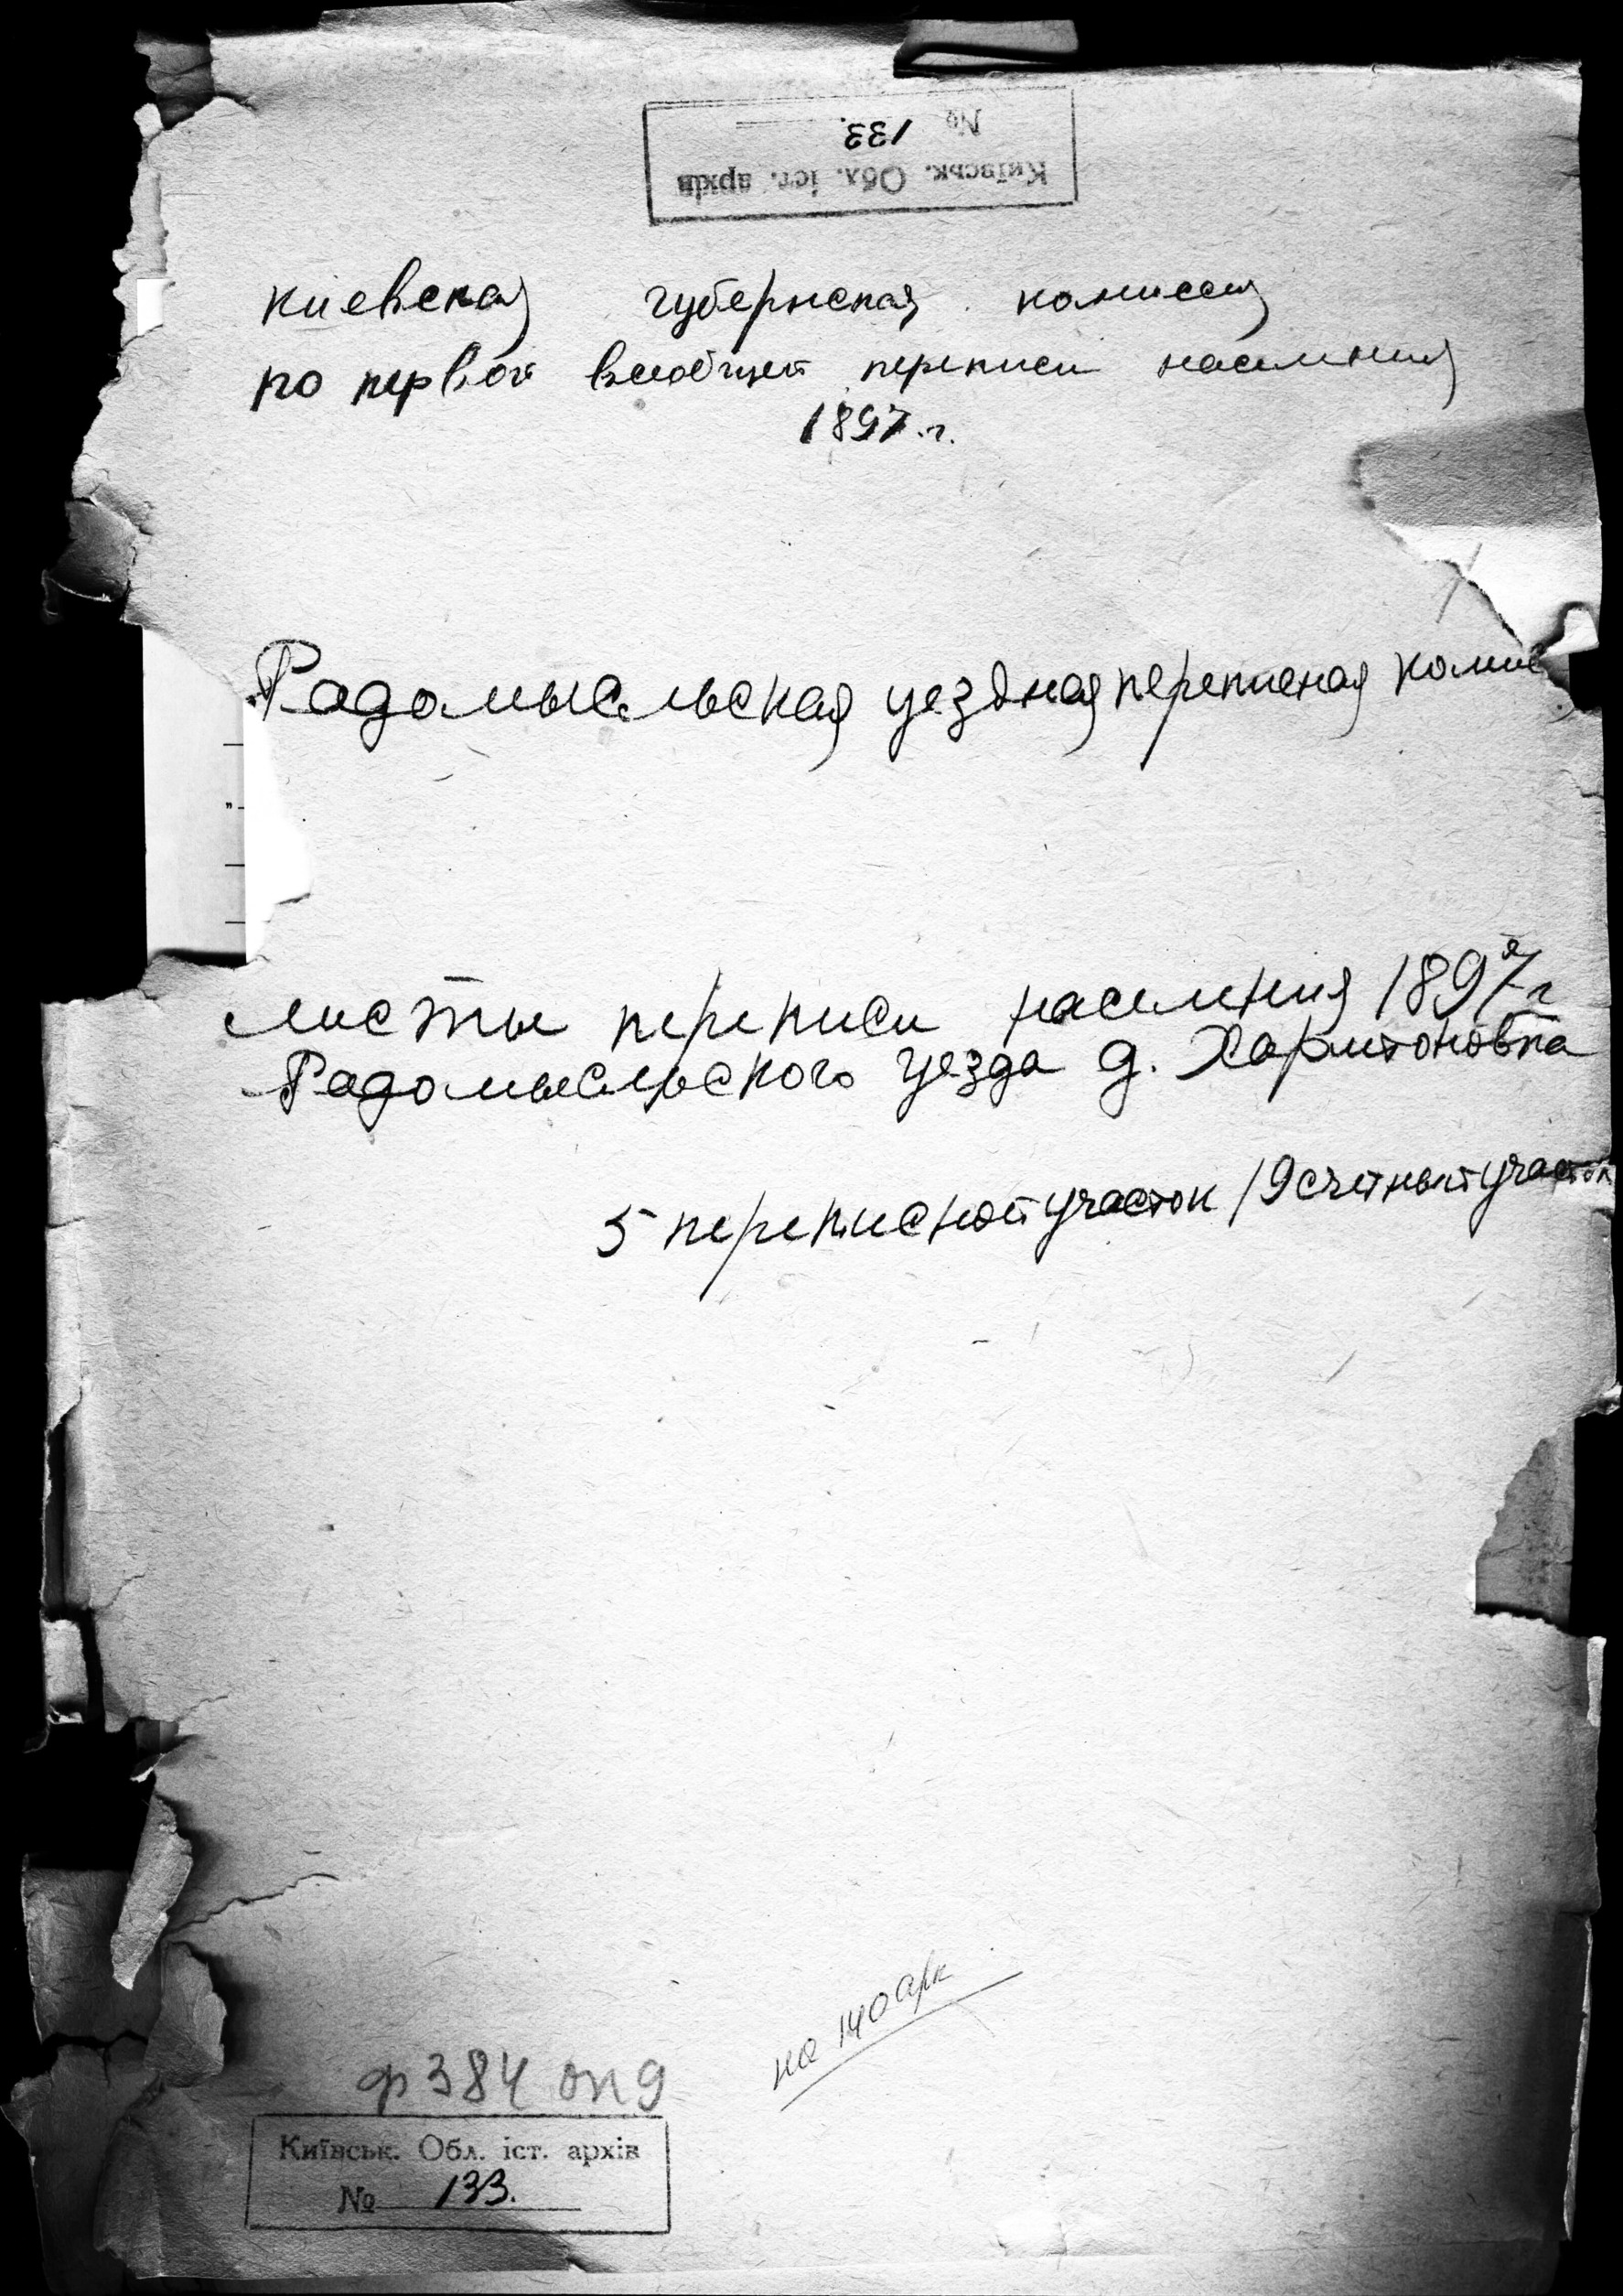 № 133.
Київськ. Обл. іст. архів
Киевская губернская комиссия
по первой всеобщей переписи населения
1897 г.
Радомысльская уездная переписная комис
Листы переписи населения 1897 г
Радомысльского уезда д. Харитоновка
5 переписной участок 19 счетный участок
на 140 арк
ф 384 оп 9
Київськ. Обл. іст. архів
№ 133.